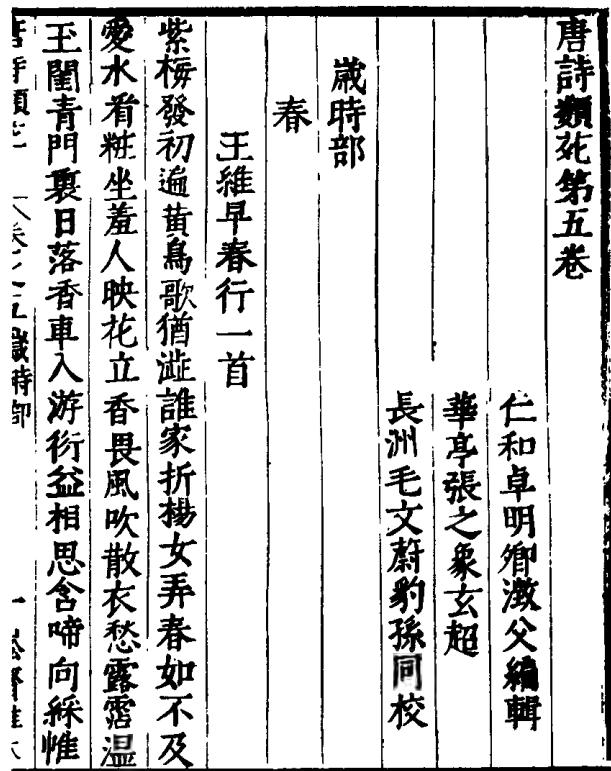 唐詩類苑第五卷
仁和卓明卿澂父編輯
華亭張之象玄超
長洲毛文蔚豹孫同校
歲時部
春
王維早春行一首
紫梅發初遍黃鳥歌猶澁誰家折楊女弄春如不及
愛水看粧坐羞人映花立香畏風吹散衣愁露霑濕
玉閨青門裏日落香車入游衍益相思含啼向綵帷
唐詩類苑 卷之五歲時部 一